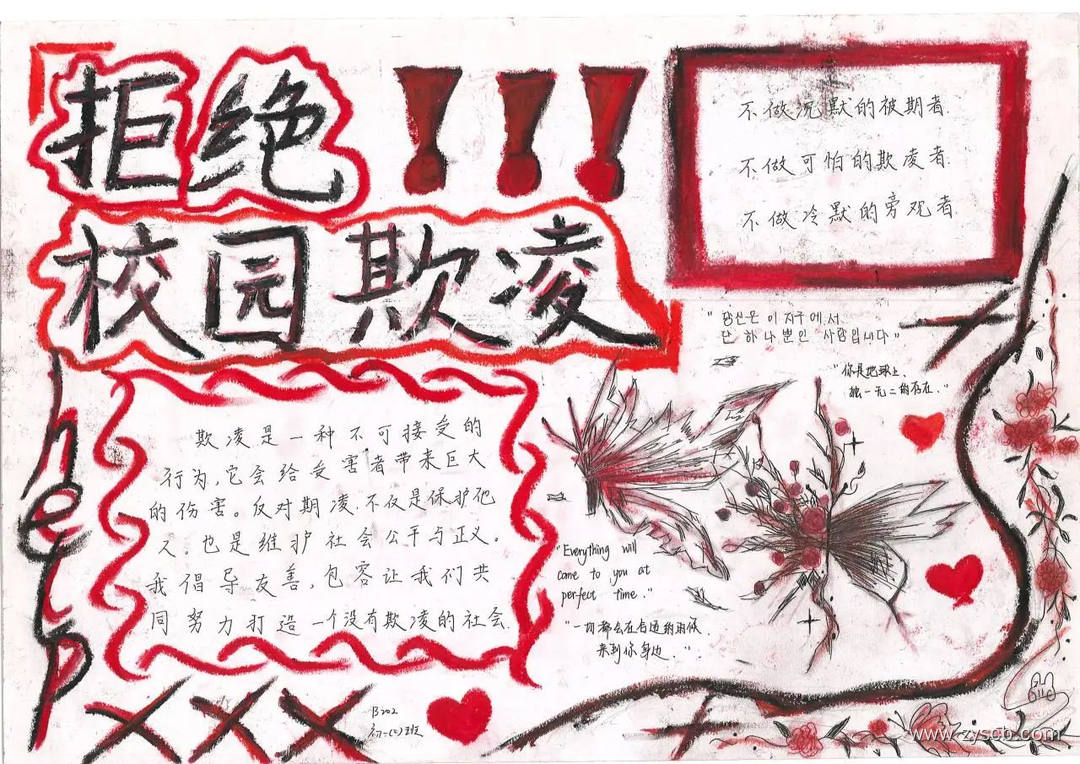 拒绝
校园欺凌
!!!
不做沉默的被期者.
不做可怕的欺凌者
不做冷默的旁观者.
"당신은 이 지구에서
단 하나뿐인 사람입니다"
"你是地球上
独一无二的存在."
help
欺凌是一种不可接受的
行为,它会给受害者带来巨大
的伤害。反对期凌.不仅是保护他
人.也是维护社会公平与正义。
我倡导友善,包容让我们共
同努力打造一个没有欺凌的社会.
"Everything will
come to you at
perfect time."
"一切都会在合适的时候
来到你身边."
XXX
初一(2)班
www.zyscb.com